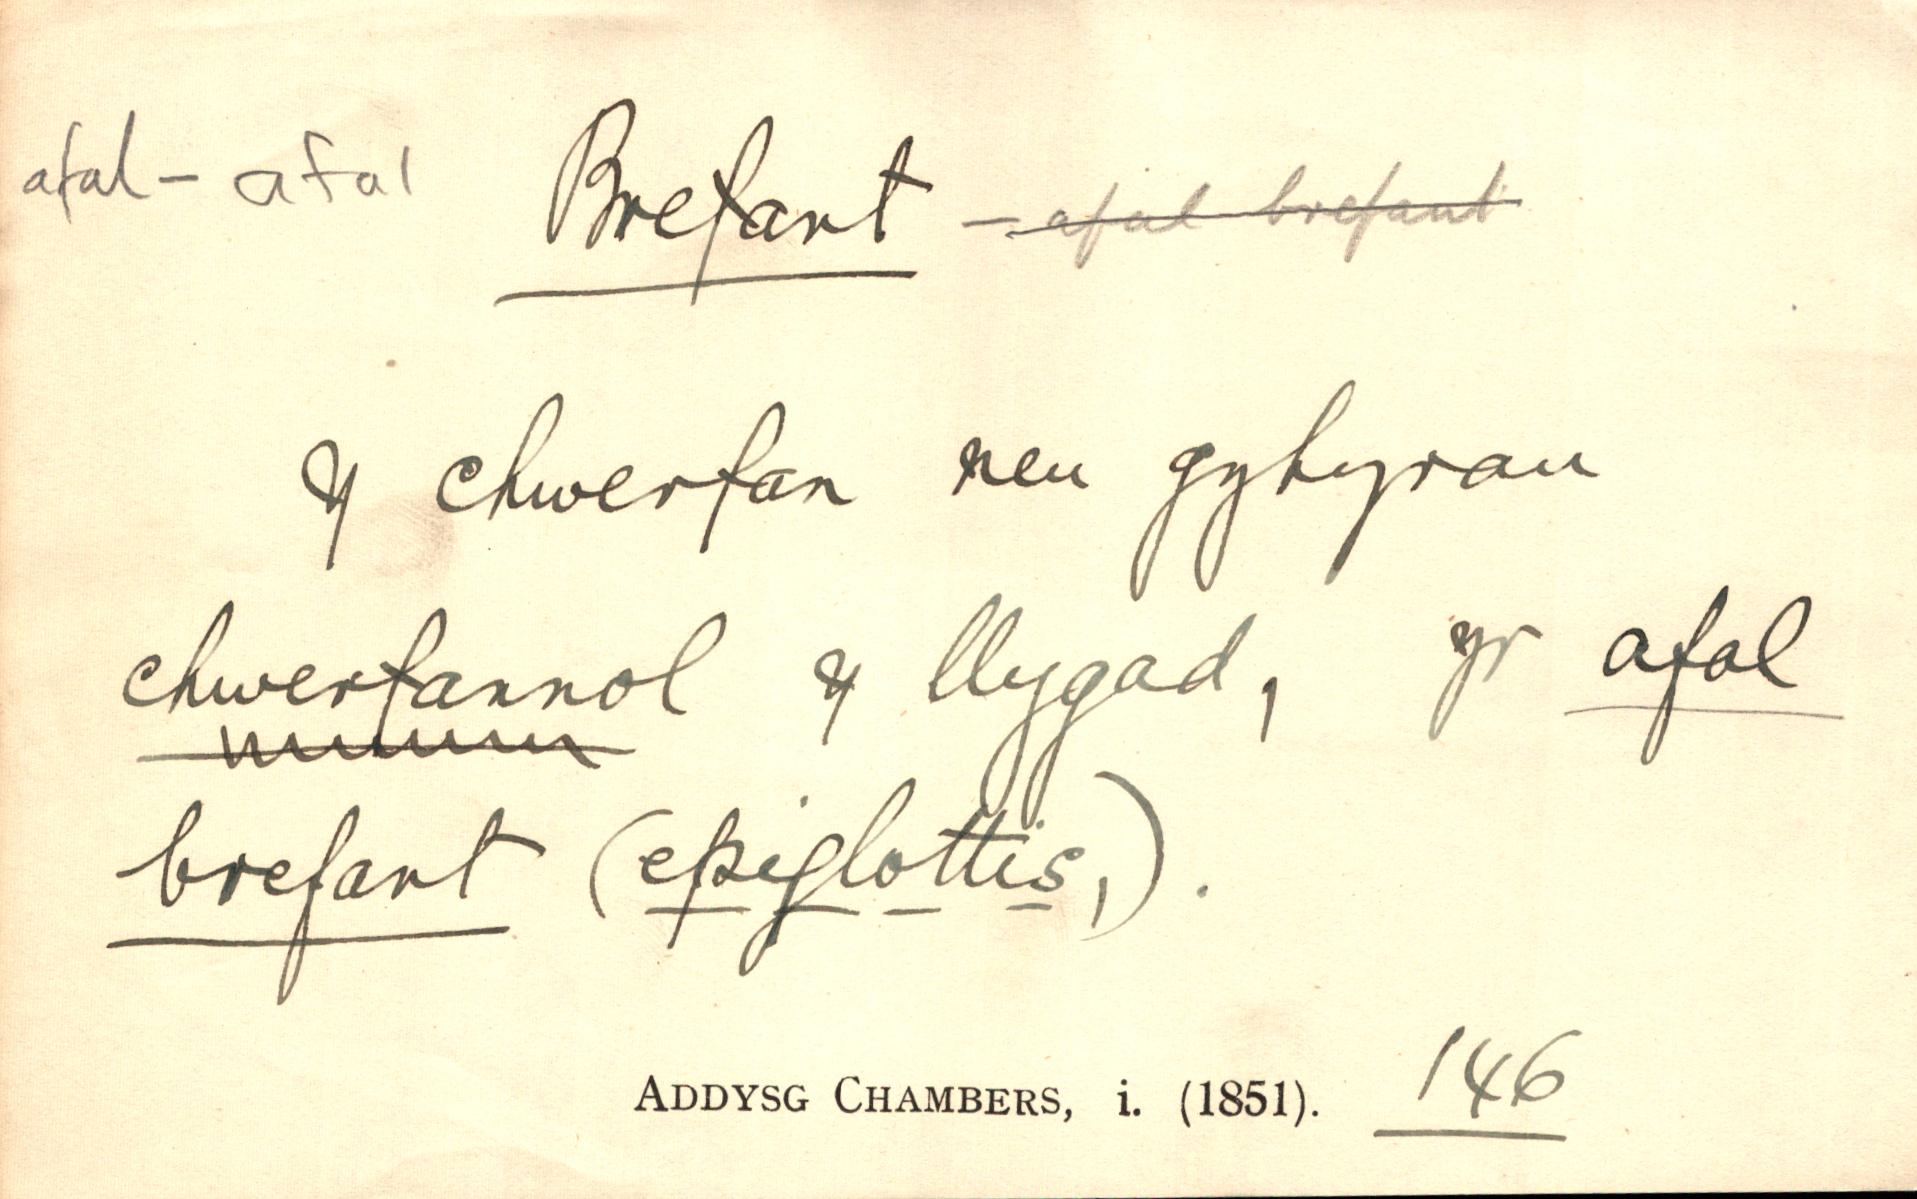 afal - afal Brefant - afal brefant
y chwerfan neu gyhyrau
chwerfannol y llygad, yr afal
brefant (epiglottis,).
ADDYSG CHAMBERS, i. (1851). 146